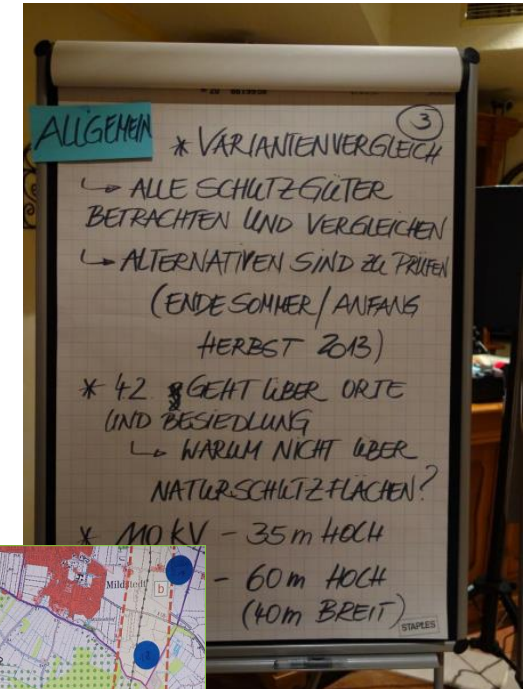 ALLGEMEIN
3
* VARIANTENVERGLEICH
↳ ALLE SCHUTZGÜTER
BETRACHTEN UND VERGLEICHEN
↳ ALTERNATIVEN SIND ZU PRÜFEN
(ENDE SOMMER/ANFANG
HERBST 2013)
* 42 GEHT ÜBER ORTE
UND BESIEDLUNG
↳ WARUM NICHT ÜBER
NATURSCHUTZFLÄCHEN?
* 110 KV - 35 m HOCH
- 60 m HOCH
(40m BREIT)
STAPLES
Mildstedt
b